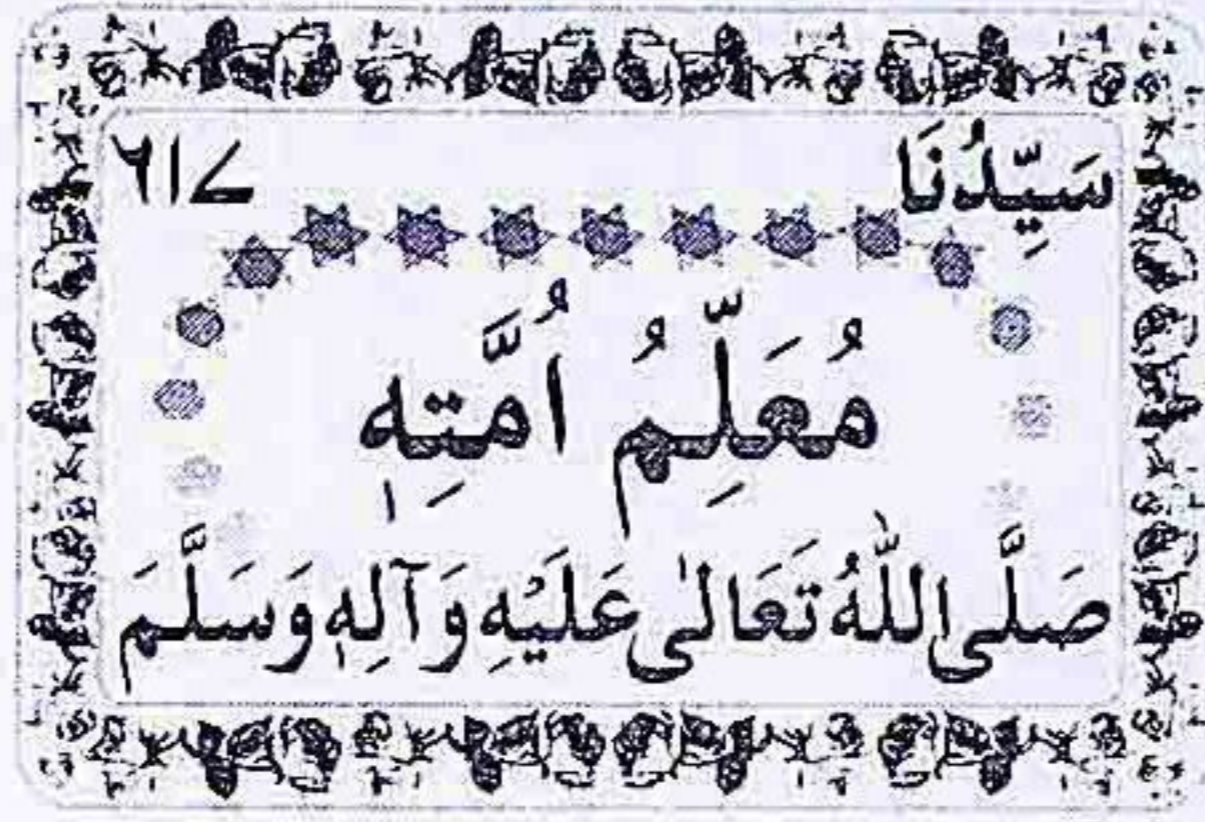 سَيِّدُنَا ۶۱۷
مُعَلِّمُ اُمَّتِهٖ
صَلَّى اللّٰهُ تَعَالٰى عَلَيْهِ وَآلِهٖ وَسَلَّمَ